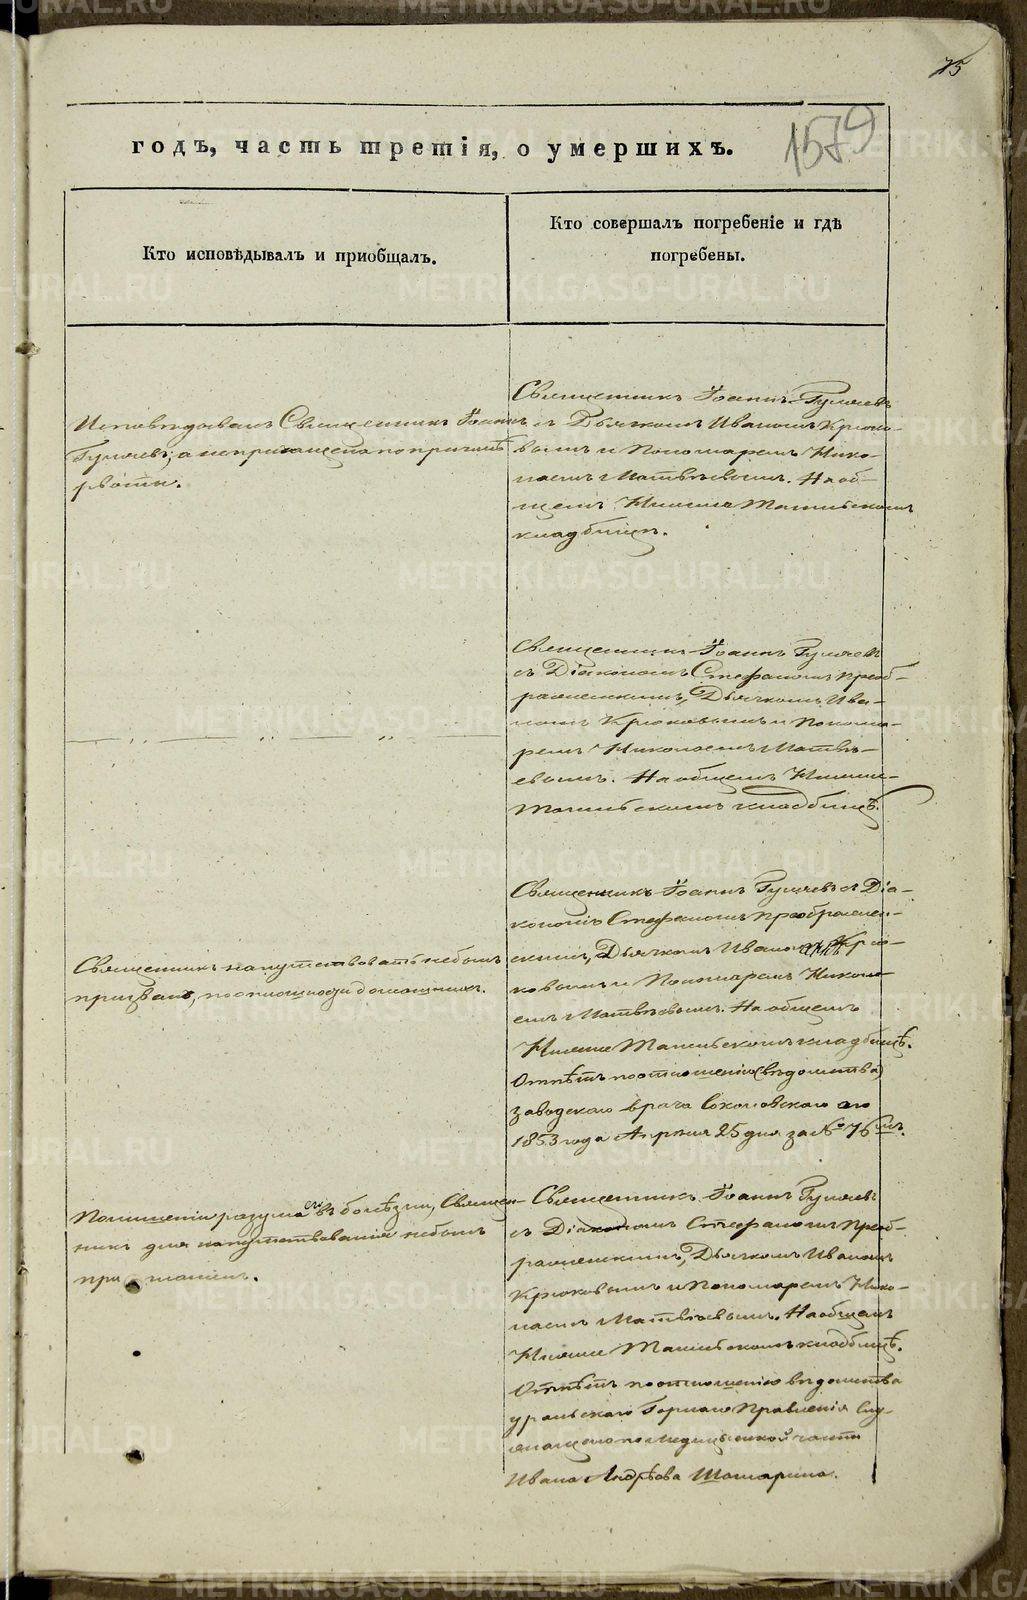 75
1579
годъ, часть третія, о умершихъ.
Кто исповѣдывалъ и приобщалъ.
Кто совершалъ погребеніе и гдѣ
погребены.
Исповѣдовалъ Священникъ Іоаннъ
Гуляевъ, а не приобщена по причинѣ
рвоты.
Священникъ Іоаннъ Гуляевъ
съ Дьячкомъ Иваномъ Крюко-
вымъ и Пономаремъ Нико-
лаемъ Матвѣевымъ. На об-
щемъ Нижне Тагильскомъ
кладбищѣ.
Священникъ Іоаннъ Гуляевъ
съ Діакономъ Стефаномъ Преоб-
раженскимъ, Дьячкомъ Ива-
номъ Крюковымъ и Понома-
ремъ Николаемъ Матвѣ-
евымъ. На общемъ Нижне-
Тагильскомъ кладбищѣ.
Священникъ напутствовать небылъ
призванъ, по оплошности домашнихъ.
Священникъ Іоаннъ Гуляевъ съ Діа-
кономъ Стефаномъ Преображен-
скимъ, Дьячкомъ Иваномъ Крю-
ковымъ и Пономаремъ Никола-
емъ Матвѣевымъ. На общемъ
Нижне Тагильскомъ кладбищѣ.
Отпѣтъ по отношенію (вѣдомства)
заводскаго врача Соколовскаго отъ
1853 года Апрѣля 25 дня за № 76мъ.
По лишеніи разума его въ болѣзни, Священ-
никъ для напутствованія небылъ
приглашенъ.
Священникъ Іоаннъ Гуляевъ
съ Діакономъ Стефаномъ Преоб-
раженскимъ, Дьячкомъ Иваномъ
Крюковымъ и Пономаремъ Нико-
лаемъ Матвѣевымъ. На общемъ
Нижне Тагильскомъ кладбищѣ.
Отпѣтъ по отношенію вѣдомства
уральскаго Горнаго Правленія Слу-
жащаго по Медицынской части
Ивана Андрѣева Шатарина.